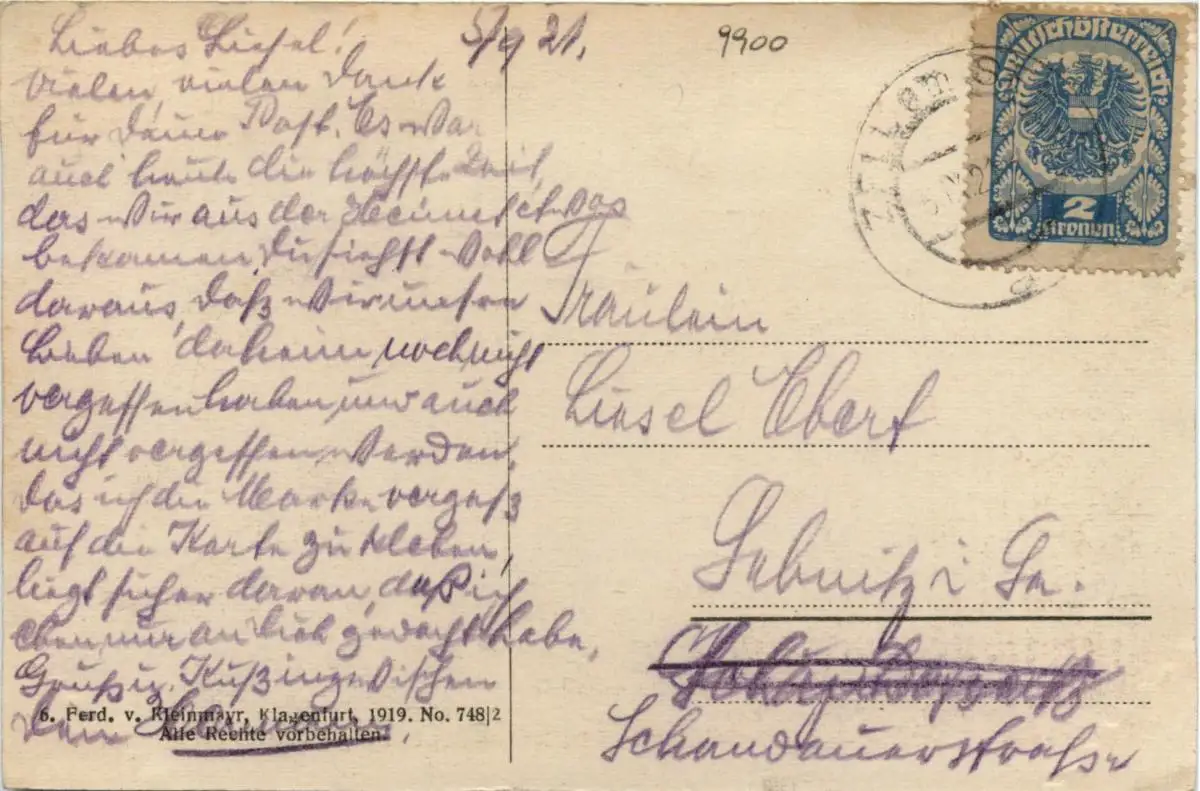 Liebes Liesel! 5/9 21.
vielen, vielen Dank
für Deine Post. Es war
auch heute die höchste Zeit,
das wir aus der Heimat etwas
bekamen. Du siehst wohl
daraus, daß wir unsere
Lieben daheim noch nicht
vergessen haben und auch
nicht vergessen werden.
Das ich die Marke vergaß
auf die Karte zu kleben,
liegt sicher daran, daß ich
eben nur an Dich gedacht habe.
Gruß u. Kuß inzwischen
Dein
6. Ferd. v. Kleinmayr, Klagenfurt, 1919. No. 748|2
Alle Rechte vorbehalten.
9900
ZELL am S
Deutschösterreich
2
Kronen
Fräulein
Liesel Ebert
Sebnitz i Sa.
Schandauerstraße